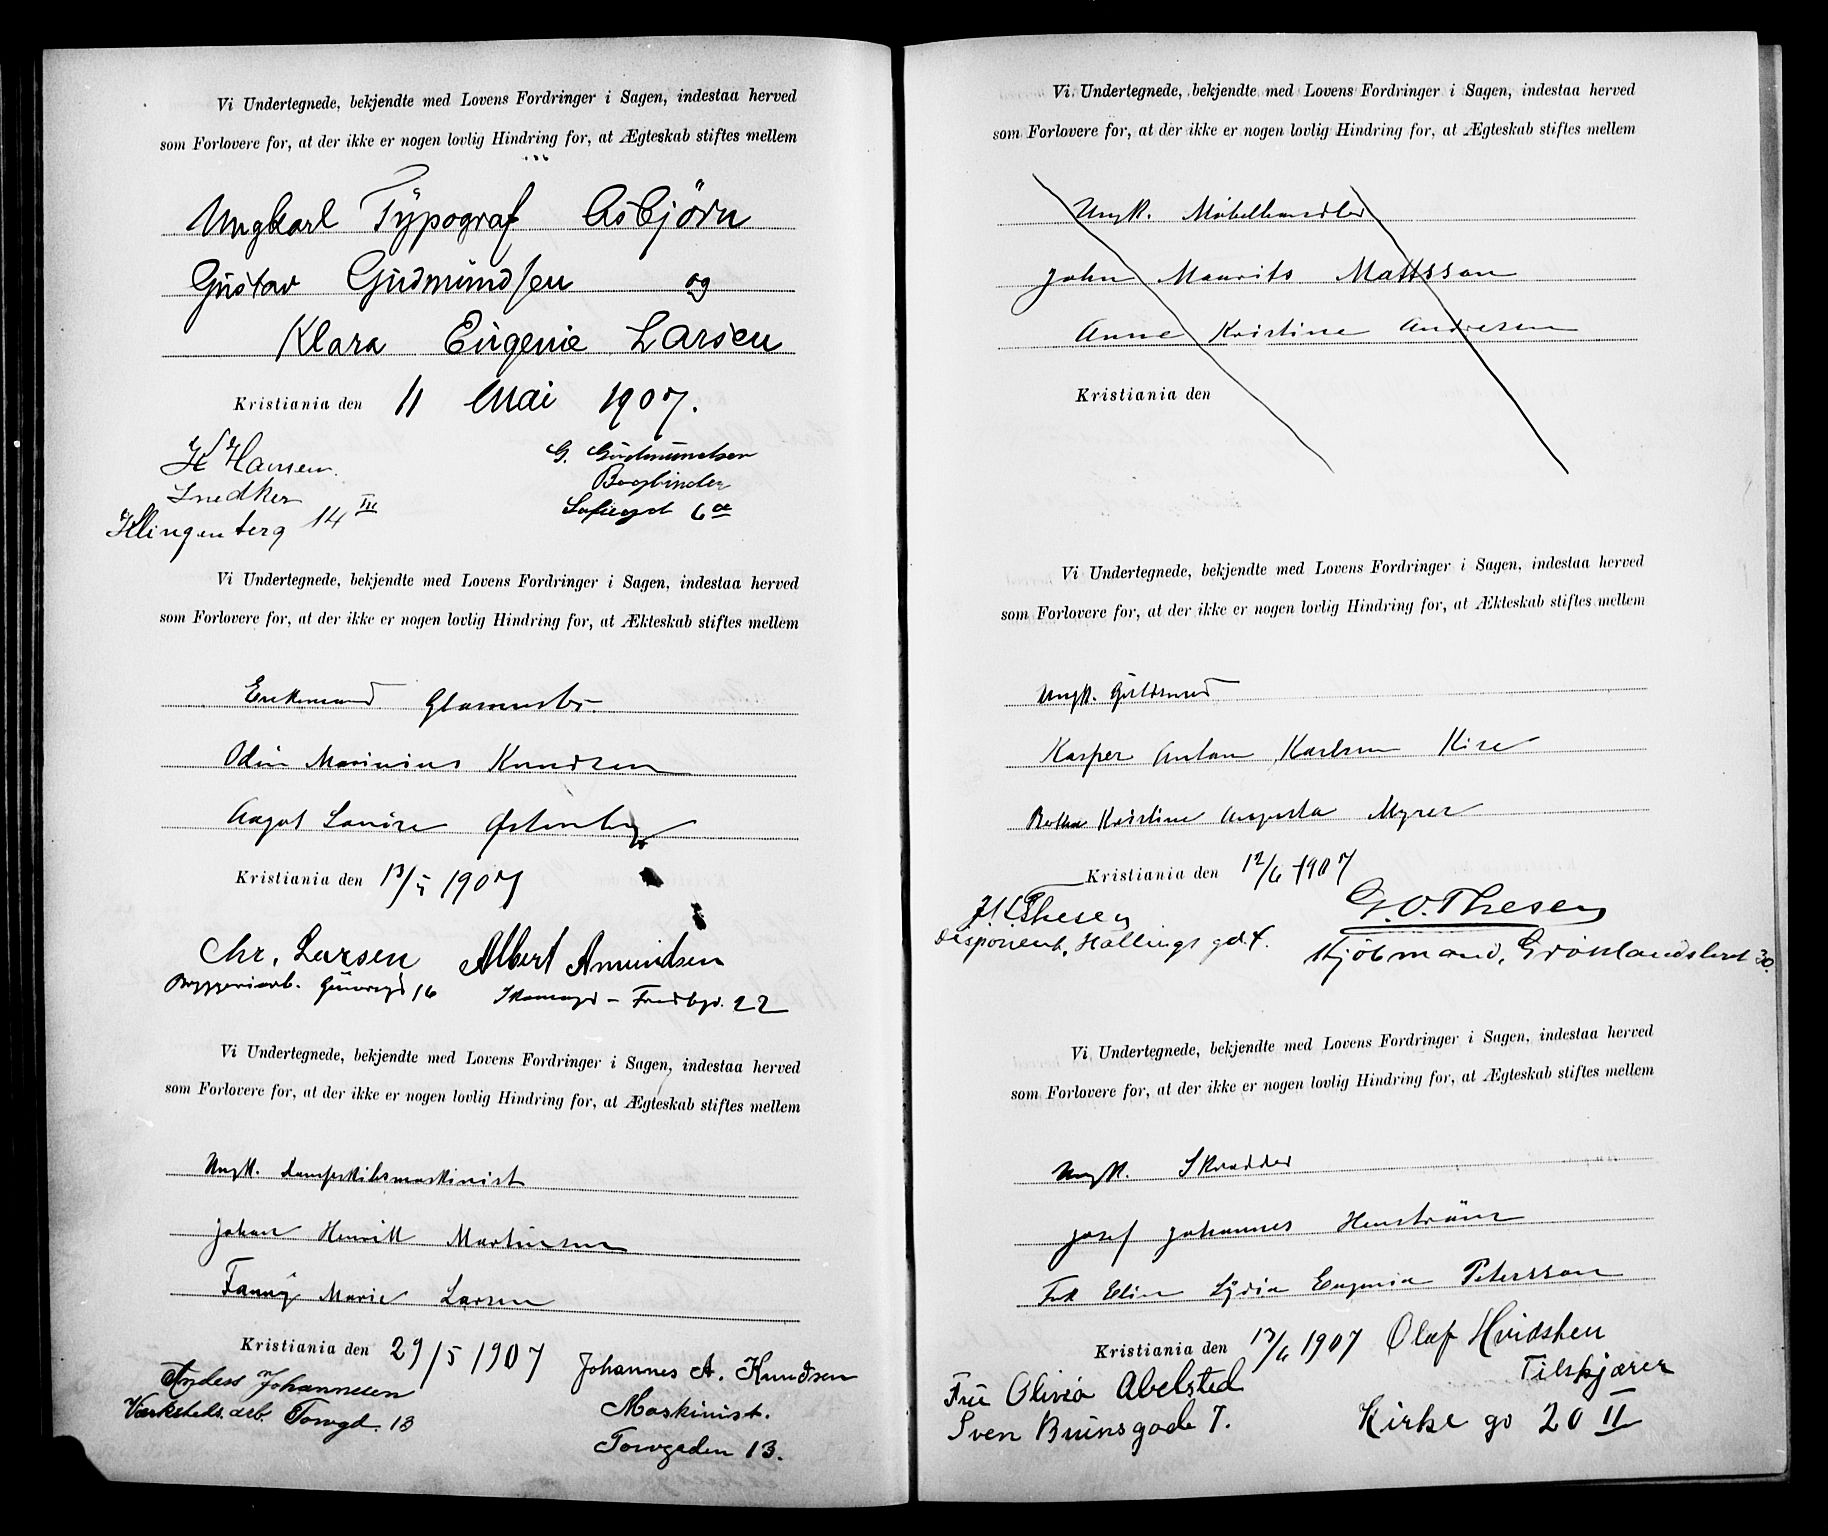 Vi Undertegnede, bekjendte med Lovens Fordringer i Sagen, indestaa herved
som Forlovere for, at der ikke er nogen lovlig Hindring for, at Ægteskab stiftes mellem
Ungkarl Typograf Asbjørn
Gustav Gudmundsen og
Klara Eugenie Larsen
Kristiania den 11 Mai 1907.
K Hansen.
Snedker
Klingenberg 14 III
G. Gudmundsen
Bogbinder
Sofiegd 6 a
Vi Undertegnede, bekjendte med Lovens Fordringer i Sagen, indestaa herved
som Forlovere for, at der ikke er nogen lovlig Hindring for, at Ækteskab stiftes mellem
Enkemand Glasmester
Odin Marinius Knudsen
Aagot Louise Østenby
Kristiania den 13/5 1907
Chr. Larsen
Bryggeriarb. 16
Albert Amundsen
Skomagr - 22
Vi Undertegnede, bekjendte med Lovens Fordringer i Sagen, indestaa herved
som Forlovere for, at der ikke er nogen lovlig Hindring for, at Ægteskab stiftes mellem
Ungk. Dampskibsmaskinist
Johan Henrik Martinsen
Fanny Marie Larsen
Kristiania den 29/5 1907
Anders Johannesen
Værksteds. arb. Torvgd. 13
Johannes A. Knudsen
Maskinist.
Torvgaden 13.
Vi Undertegnede, bekjendte med Lovens Fordringer i Sagen, indestaa herved
som Forlovere for, at der ikke er nogen lovlig Hindring for, at Ægteskab stiftes mellem
Ungk. Møbelhandler
John Maurits Mattsson
Anne Kristine Andresen
Kristiania den
Vi Undertegnede, bekjendte med Lovens Fordringer i Sagen, indestaa herved
som Forlovere for, at der ikke er nogen lovlig Hindring for, at Ækteskab stiftes mellem
Ungk. Guldsmed
Kasper Anton Karlsen Kise
Kristine Augusta Myrer
Kristiania den 12/6 1907
Thesen
Disponent, Hallings gd. 4.
G. O. Thesen
Kjøbmand, Grønlandsleret 30.
Vi Undertegnede, bekjendte med Lovens Fordringer i Sagen, indestaa herved
som Forlovere for, at der ikke er nogen lovlig Hindring for, at Ægteskab stiftes mellem
Ungk. Skrædder
Josef Johannes Henström
Frk Elin Lydia Eugenia Petersson
Kristiania den 13/6 1907
Fru Olivia Abelsted
Sven Bruns gade 7.
Olaf Hvidsten
Tilskjærer
Kirke gd 20 II